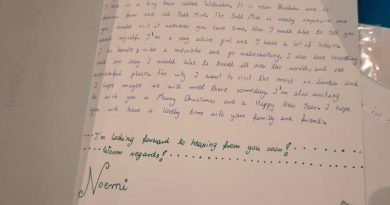 I live in a tiny town called Wieliczka. It is near Kraków and is
famous from old Salt Mine. The Salt Mine is really impressive and
you should visit at moments you have time. Now I would like to tell you
about myself. I'm a very active girl and I have a lot of hobbies.
I do karate, ride a motorbike and go snowboarding. I also love travelling
and one day I would like to travel all over the world, and see
wonderful places. The city I want to visit the most is London and
I hope maybe we will meet there someday. I'm also writing
wish you a Merry Christmas and a Happy New Year. I hope
you will have a lovely time with your family and friends.
I'm looking forward to hearing from you soon!
Warm regards!
Noemi